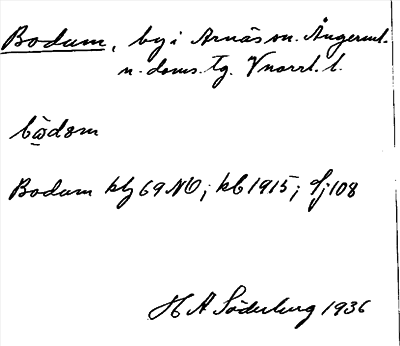 Bodum, by i Arnäs sn. Ångerml.
n. doms. tg. Vnorrl. l.
bὼdəm
Bodum kbl 69 NV; kb 1915; Sj 108
H A Söderberg 1936